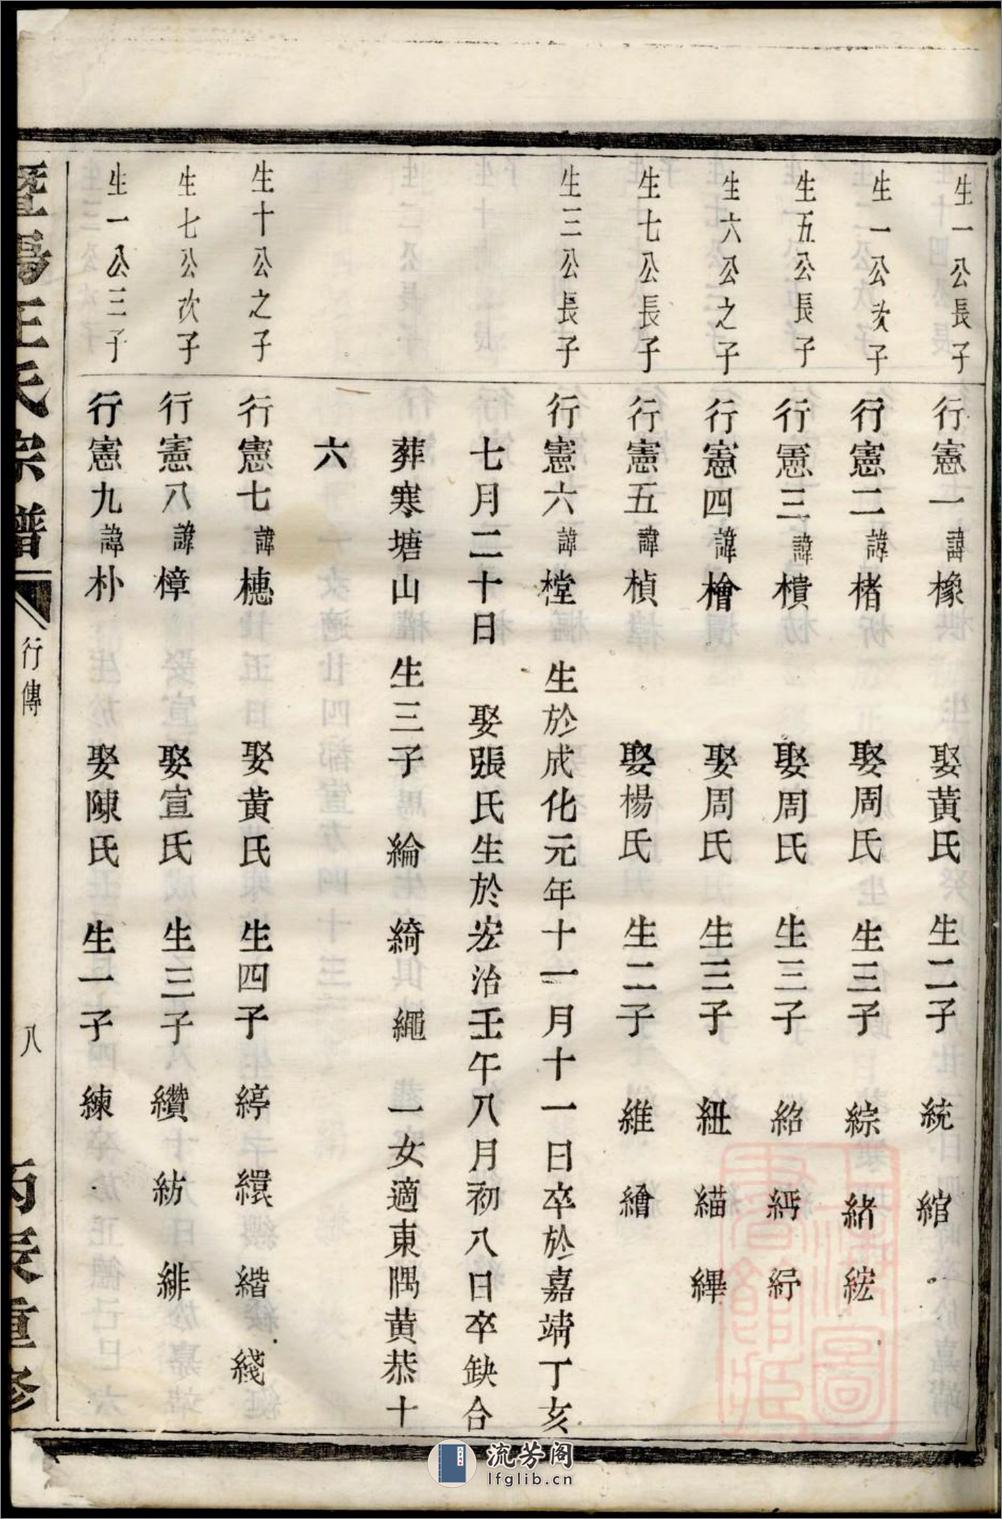 生一公長子
行憲一諱橡 娶黃氏 生二子 統 綰
生一公次子
行憲二諱楮 娶周氏 生三子 綜 緒 綋
生五公長子
行憲三諱樻 娶周氏 生三子 紹 紆
生六公之子
行憲四諱檜 娶周氏 生三子 紐 緢 繟
生七公長子
行憲五諱楨 娶楊氏 生二子 維 繪
生三公長子
行憲六諱樘 生於成化元年十一月十一日卒於嘉靖丁亥
七月二十日 娶張氏生於宏治壬午八月初八日卒缺合
葬寒塘山 生三子 綸 綺 繩 一女適東隅黃恭十
六
生十公之子
行憲七諱橞 娶黃氏 生四子 綍 繯 綹 綫
生七公次子
行憲八諱樟 娶宣氏 生三子 纘 紡 緋
生一公三子
行憲九諱朴 娶陳氏 生一子 練
暨陽王氏宗譜
行傳
八
丙辰重修
流芳阁
lfglib.cn